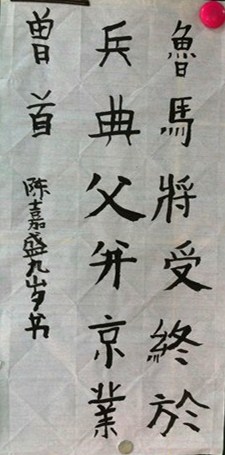 魯馬將受終於
兵典父并京業
曾首
陈嘉盛九岁书